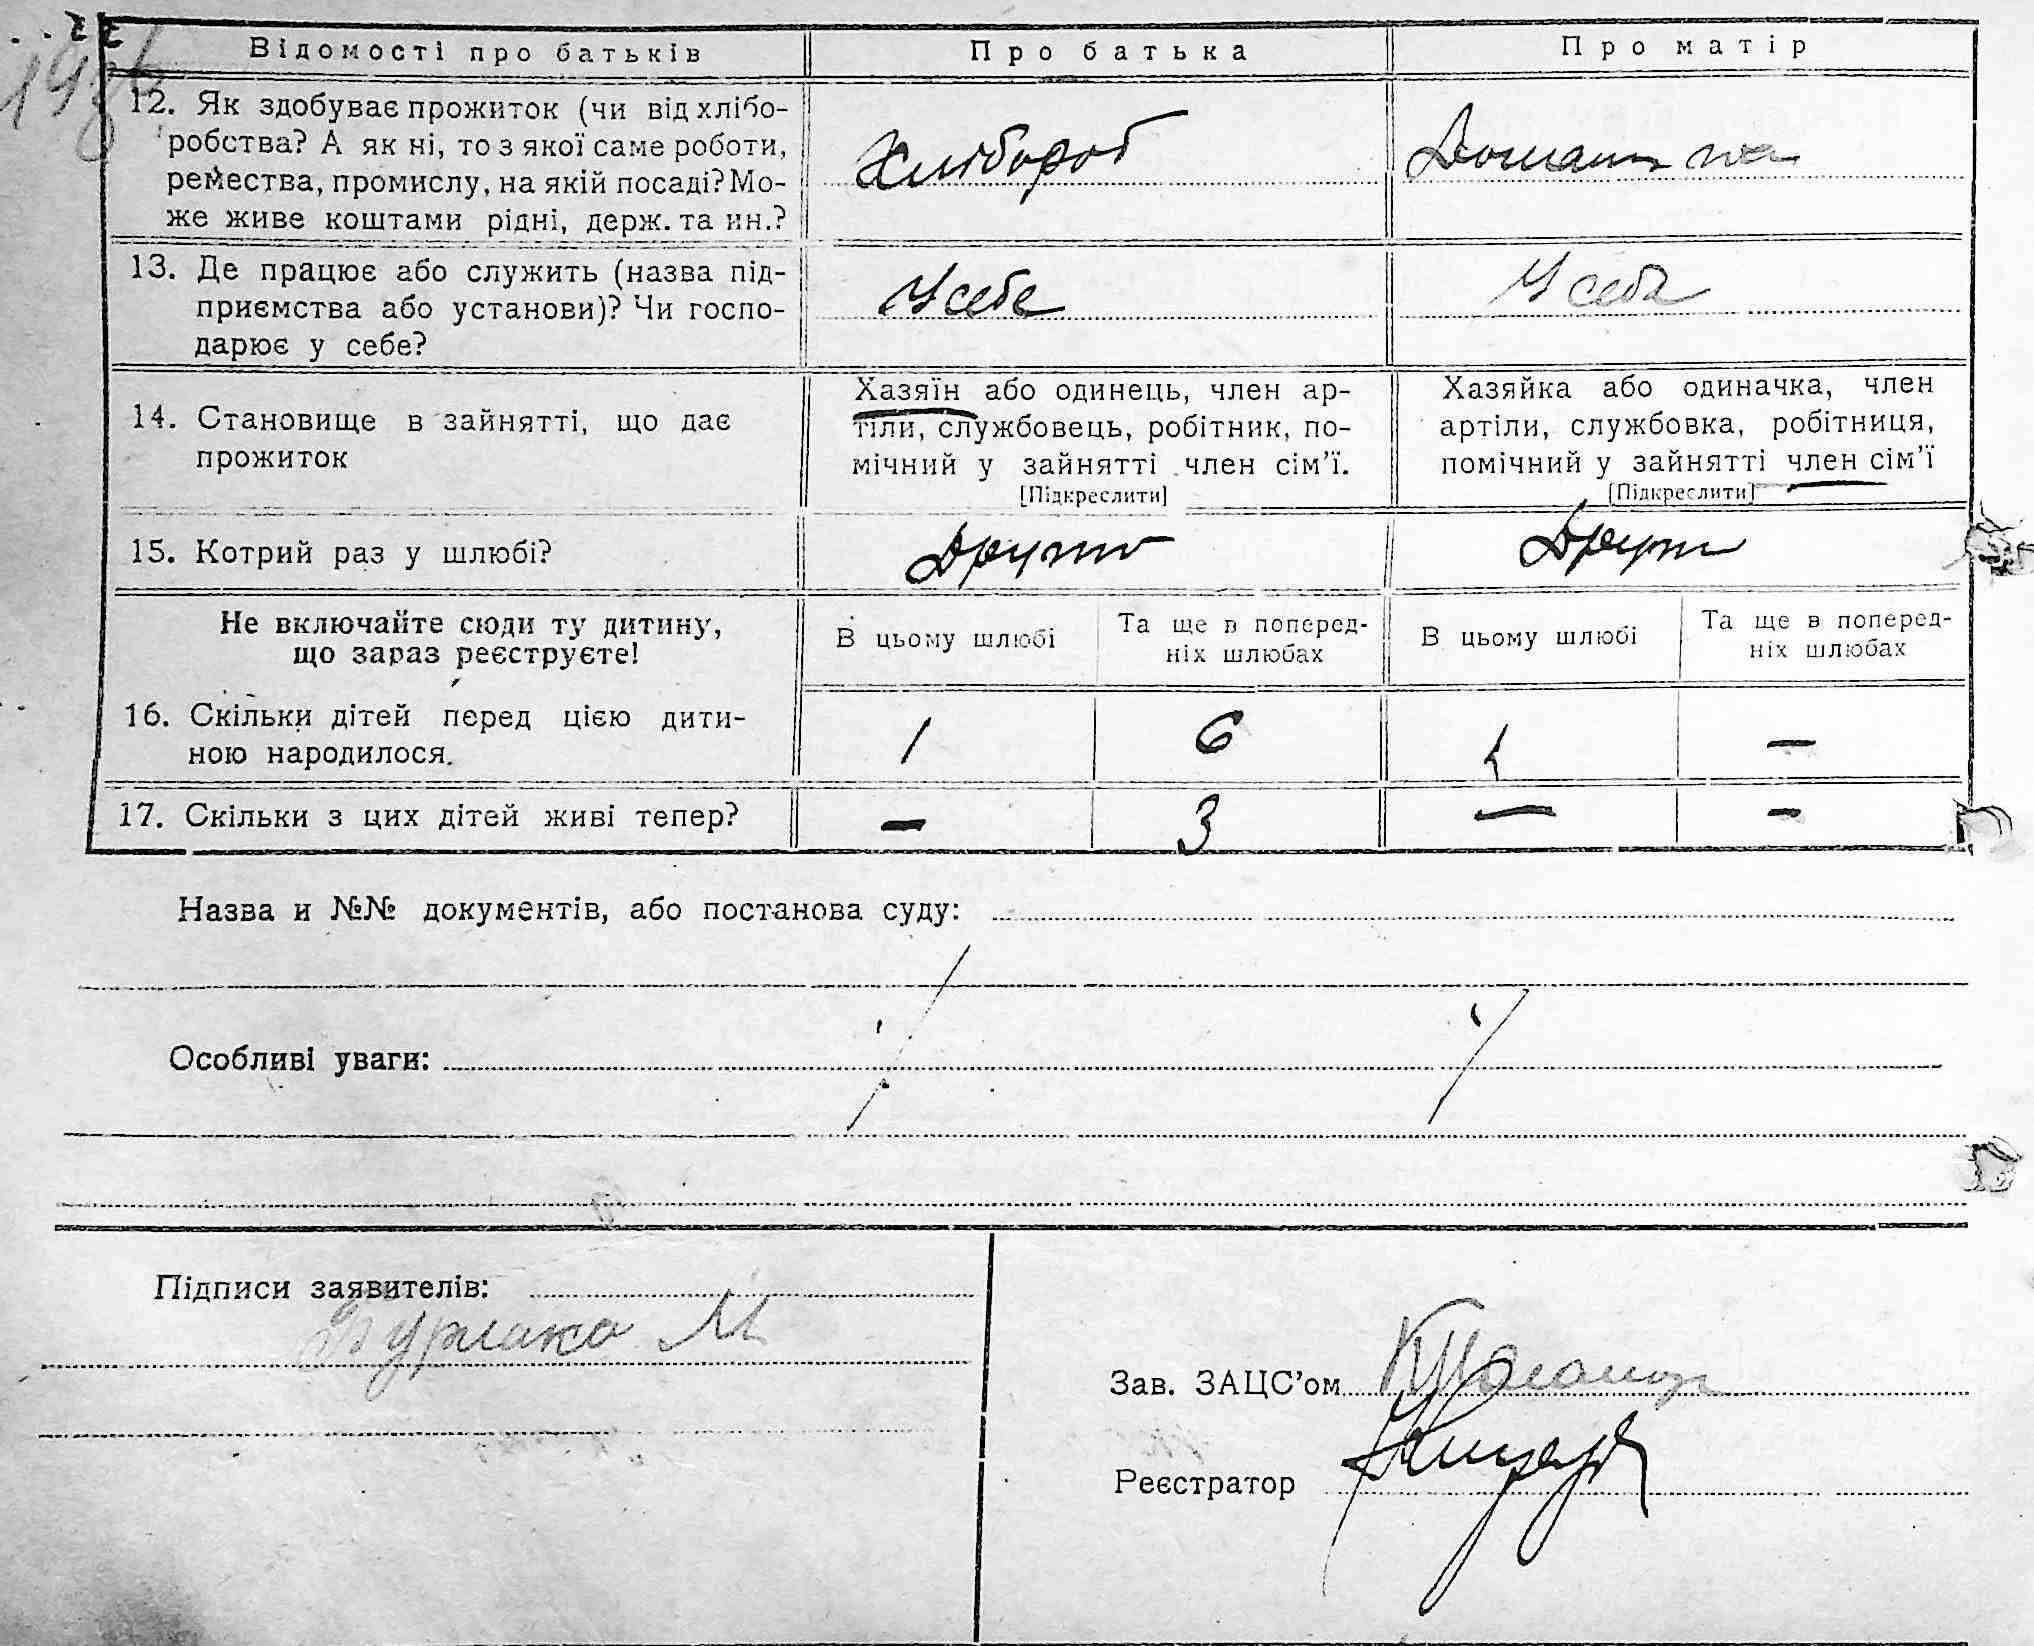 Відомості про батьків Про батька Про матір
12. Як здобуває прожиток (чи від хлібо-
робства? А як ні, то з якої саме роботи,
ремества, промислу, на якій посаді? Мо-
же живе коштами рідні, держ. та ин.?
Хлібороб
13. Де працює або служить (назва під-
приємства або установи)? Чи госпо-
дарює у себе?
У себе У себе
14. Становище в зайнятті, що дає
прожиток
Хазяїн або одинець, член ар-
тіли, службовець, робітник, по-
мічний у зайнятті член сім’ї.
[Підкреслити]
Хазяйка або одиначка, член
артіли, службовка, робітниця,
помічний у зайнятті член сім’ї
[Підкреслити]
15. Котрий раз у шлюбі?
Не включайте сюди ту дитину,
що зараз реєструєте!
В цьому шлюбі
Та ще в поперед-
ніх шлюбах
В цьому шлюбі
Та ще в поперед-
ніх шлюбах
16. Скільки дітей перед цією дити-
ною народилося.
1 6 1 —
17. Скільки з цих дітей живі тепер? — 3 — —
Назва и №№ документів, або постанова суду:
Особливі уваги:
Підписи заявителів:
Бурлака М
Зав. ЗАЦС’ом
Реєстратор